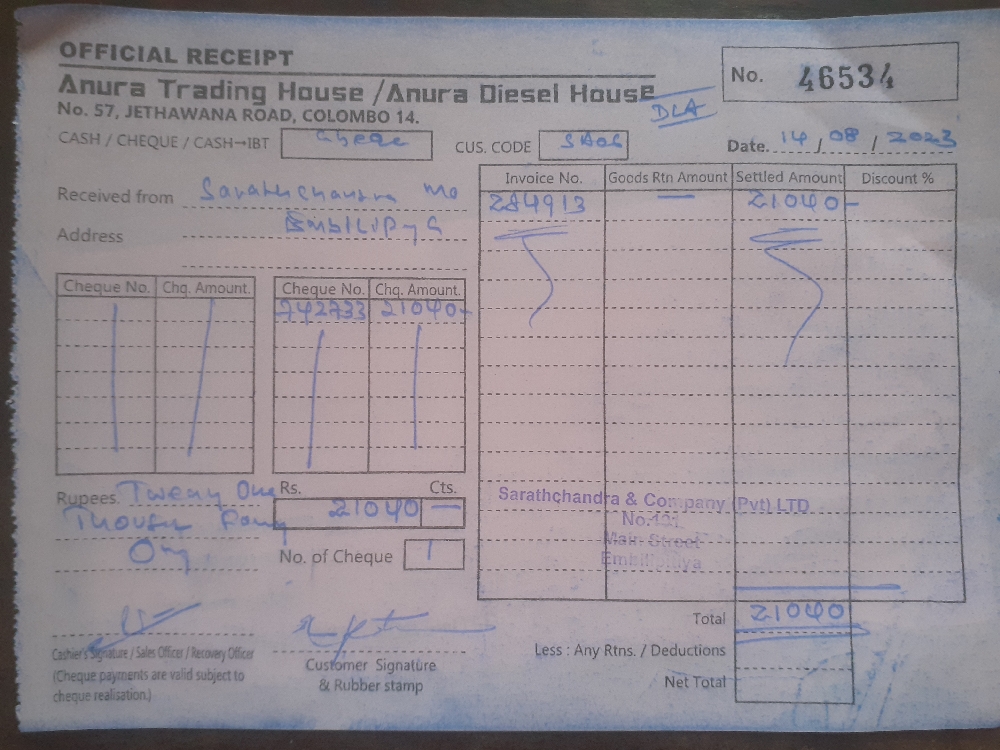 OFFICIAL RECEIPT
Anura Trading House /Anura Diesel House
No. 57, JETHAWANA ROAD, COLOMBO 14.
No. 46534
DLA
CASH / CHEQUE / CASH→IBT
CUS. CODE
Date. 14 / 08 / 2023
Received from Sarathchandra
Address
Invoice No. Goods Rtn Amount Settled Amount Discount %
284913 — 21040-
Cheque No. Chq. Amount. Cheque No. Chq. Amount.
742733 21040-
Rupees. Twenty One
Rs. Cts.
21040 —
No. of Cheque 1
Sarathchandra & Company (Pvt) LTD
Main Street
Embilipitiya
Total 21040
Less : Any Rtns. / Deductions
Net Total
Cashier's Signature / Sales Officer / Recovery Officer
(Cheque payments are valid subject to
cheque realisation.)
Customer Signature
& Rubber stamp